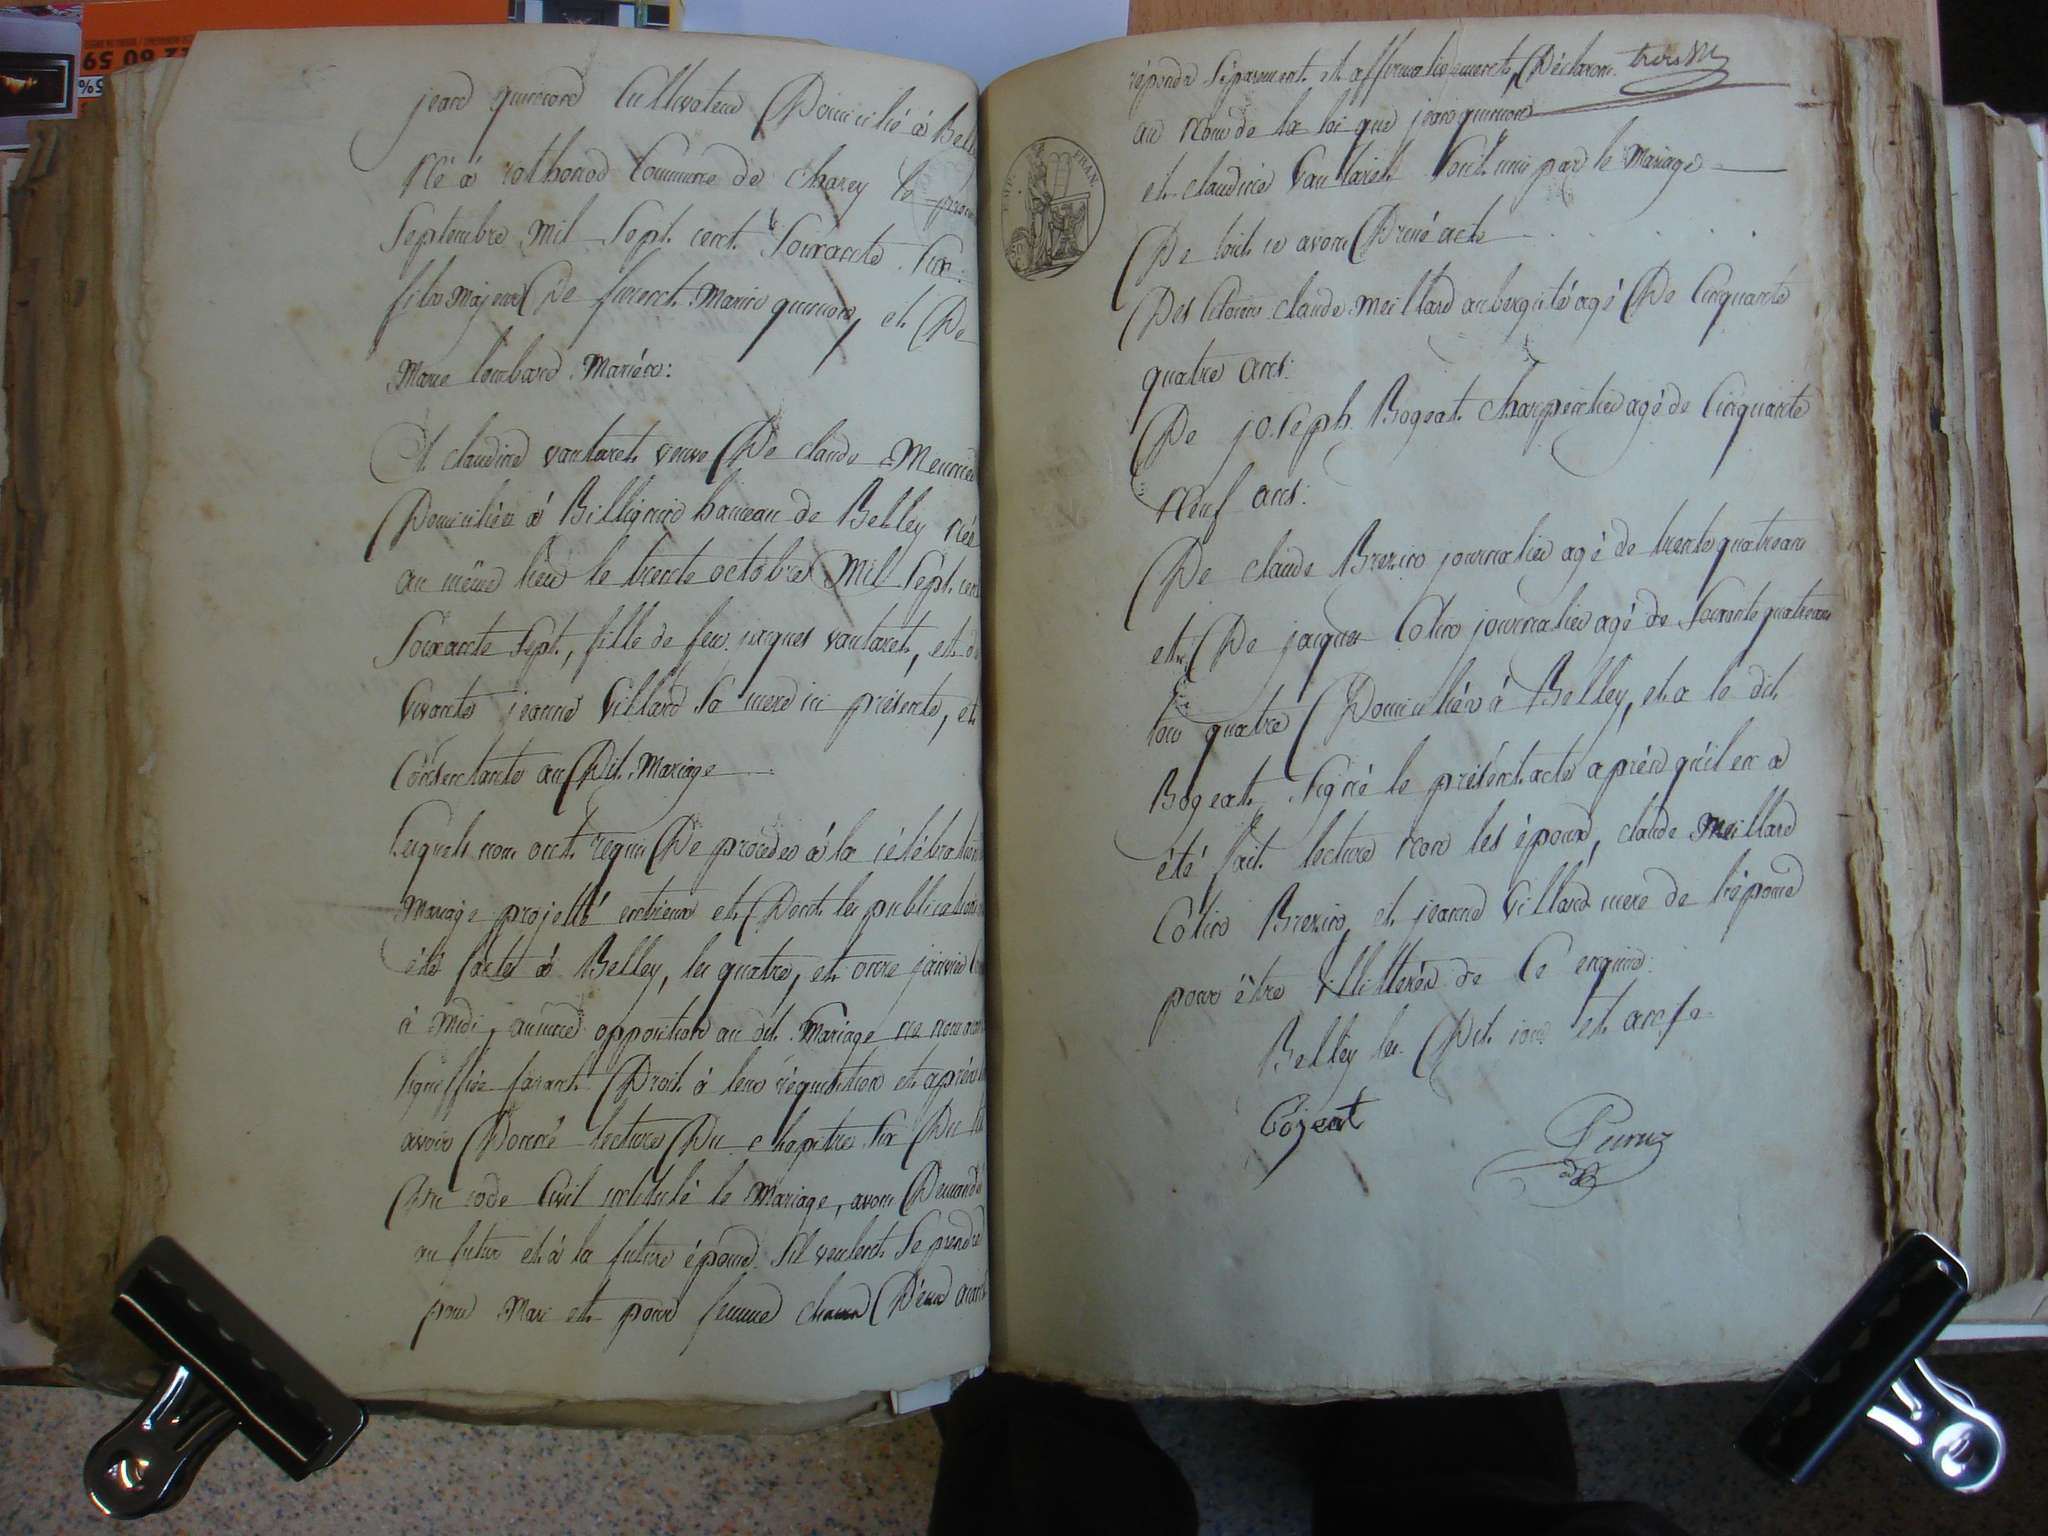 jean quinson Cultivateur Domicilié à Belley
Né à rothonod Commune de Charey le
Septembre mil Sept cent Soixante Six
fils Majeur De Marin quinson, et De
Marie lombard Mariés:
Et claudine vautaret veuve De claude Meunier
Domiciliée à Billignin hameau de Belley née
au même lieu le trente octobre Mil Sept cent
Soixante Sept, fille de feu jacques vautaret, et de
vivante jeanne Villard Sa mere ici présente, et
Consentante au Dit Mariage
Lesquels nous ont requis De proceder à la célébration
Mariage projetté entreeux et Dont les publications
été faite à Belley, les quatre, et onze janvier
à Midi, aucune opposition au dit Mariage ne nous
Signiffiée faisant Droit à leur réquisition et après
avoir Donné lecture Du chapitre Six Du
Du code Civil intitulé le Mariage, avons Demandé
au futur et à la future épouse Sil veulent Se prendre
pour Mari et pour femme chacun D'eux aiant
répondu Séparement et affirmativement, Déclarons
au Nom de la loi que jean quinson
et claudine Vautaret Sont unis par le Mariage
De tout ce avons Dressé acte
Des Citoiens claude Meillard aubergiste agé De Cinquante
quatre ans:
De joseph Bogeat charpentier agé de Cinquante
Neuf ans:
De claude Brezin journalier agé de trente quatre ans
et De jacques Cotin journalier agé de Soixante quatre ans
tous quatre Domiciliés à Belley, et a le dit
Bogeat Signé le présent acte après qu'il en a
été fait lecture non les époux, claude Meillard
Cotin Brezin, et jeanne Villard mere de l'épouse
pour être illitterés de Ce enquis:
Belley les Dit jour et an
Bogeat
EMP. FRAN.
12 60 59